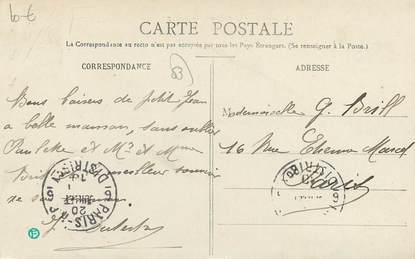 6-E
CARTE POSTALE
La Correspondance au recto n'est pas acceptée par tous les Pays Étrangers. (Se renseigner à la Poste.)
CORRESPONDANCE
83
ADRESSE
Bons baisers de petit Jean
a belle maman, sans oublier
Paulette et Mr et Mme
Brill meilleur souvenir
de
Mademoiselle G. Brill
16 Rue Etienne Marcel
Paris
PARIS
20
JUILLET
DISTRIBON